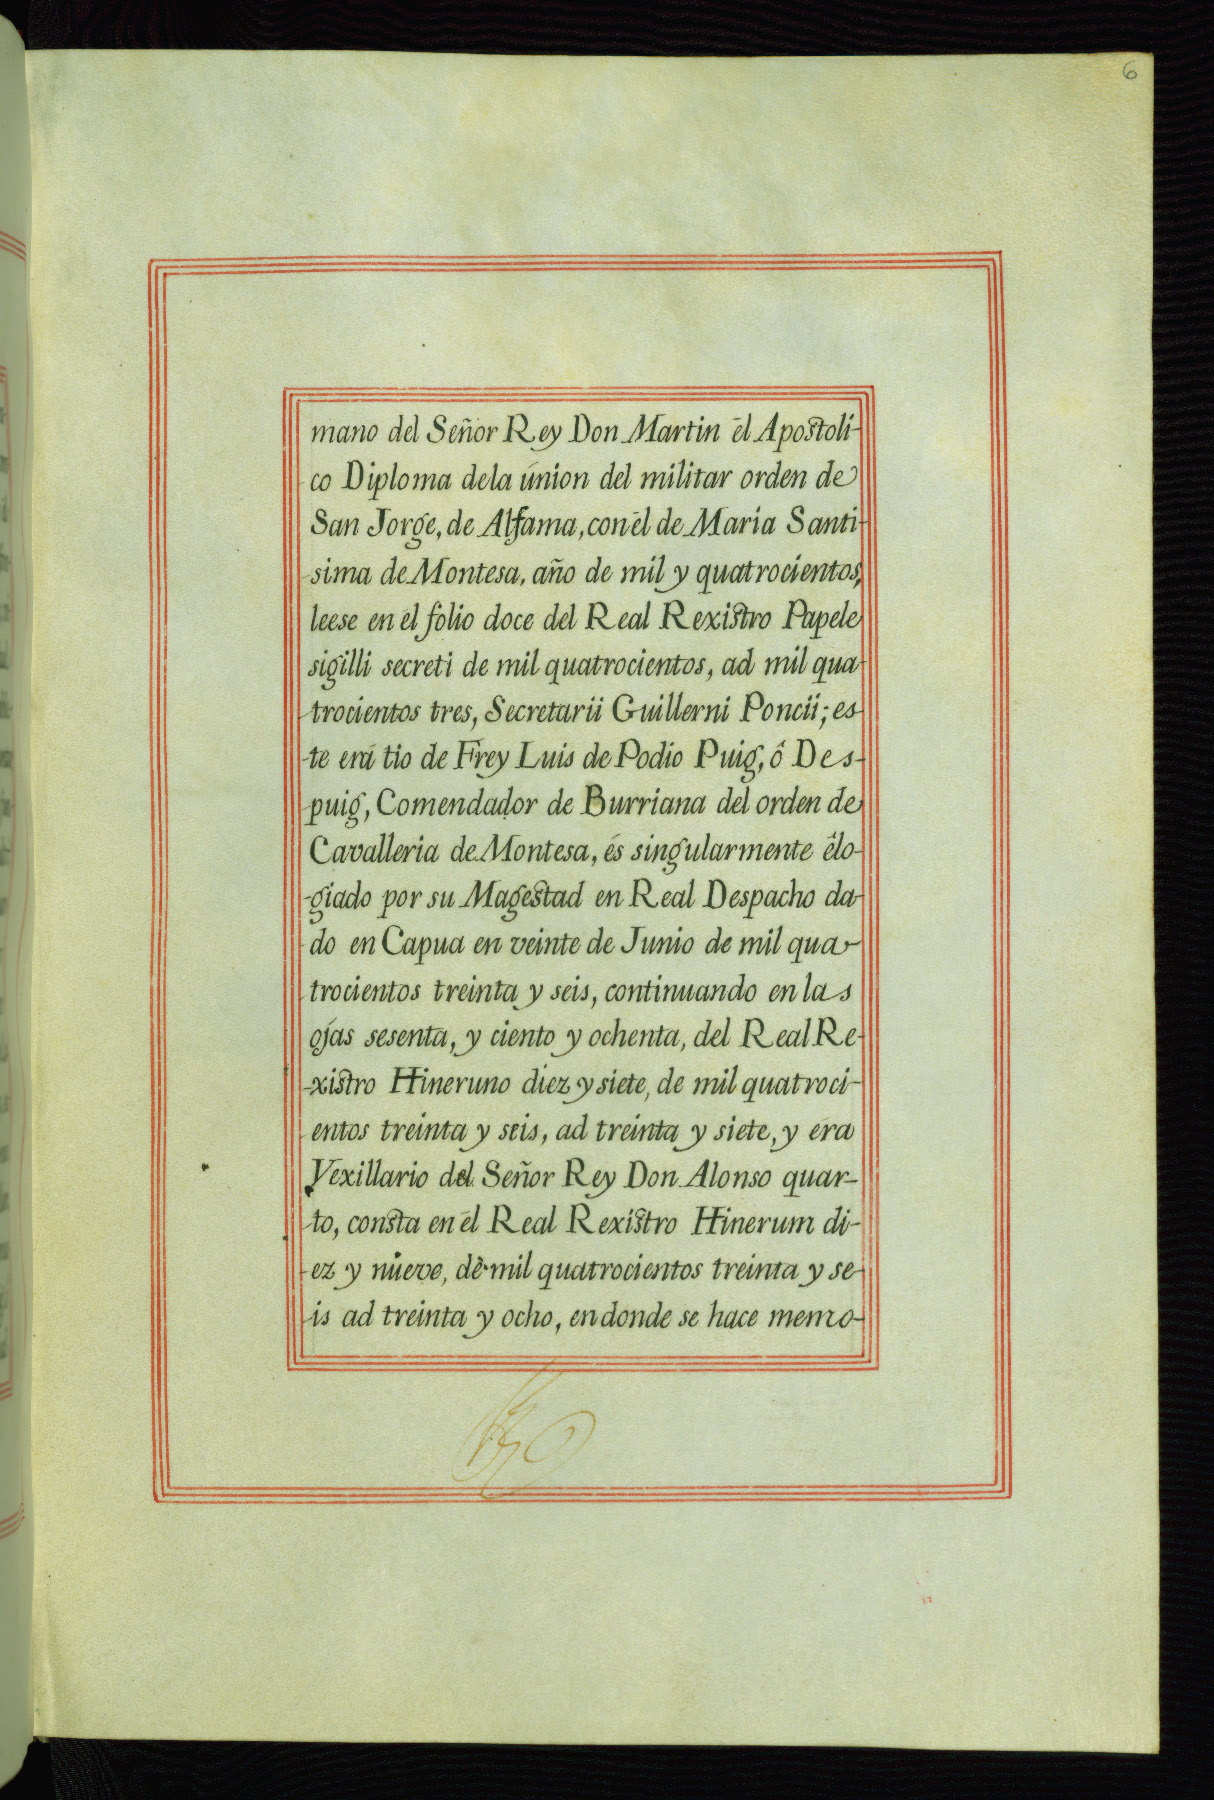 6
mano del Señor Rey Don Martin él Apostoli-
co Diploma dela únion del militar orden de
San Jorge, de Alfama, con él de Maria Santi-
sima de Montesa, año de mil y quatrocientos,
leese en él folio doce del Real Rexistro Papele
sigilli secreti de mil quatrocientos, ad mil qua-
trocientos tres, Secretarii Guillerni Poncii; es-
te erá tio de Frey Luis de Podio Puig, ó Des-
puig, Comendador de Burriana del orden de
Cavalleria de Montesa, és singularmente élo-
giado por su Magestad en Real Despacho da-
do en Capua en veinte de Junio de mil qua-
trocientos treinta y seis, continuando en las
ojás sesenta, y ciento y ochenta, del Real Re-
xistro Hineruno diez y siete, de mil quatroci-
entos treinta y seis, ad treinta y siete, y éra
Vexillario del Señor Rey Don Alonso quar-
to, consta en él Real Rexistro Hinerum di-
ez y nueve, dè mil quatrocientos treinta y se-
is ad treinta y ocho, en donde se hace memo-